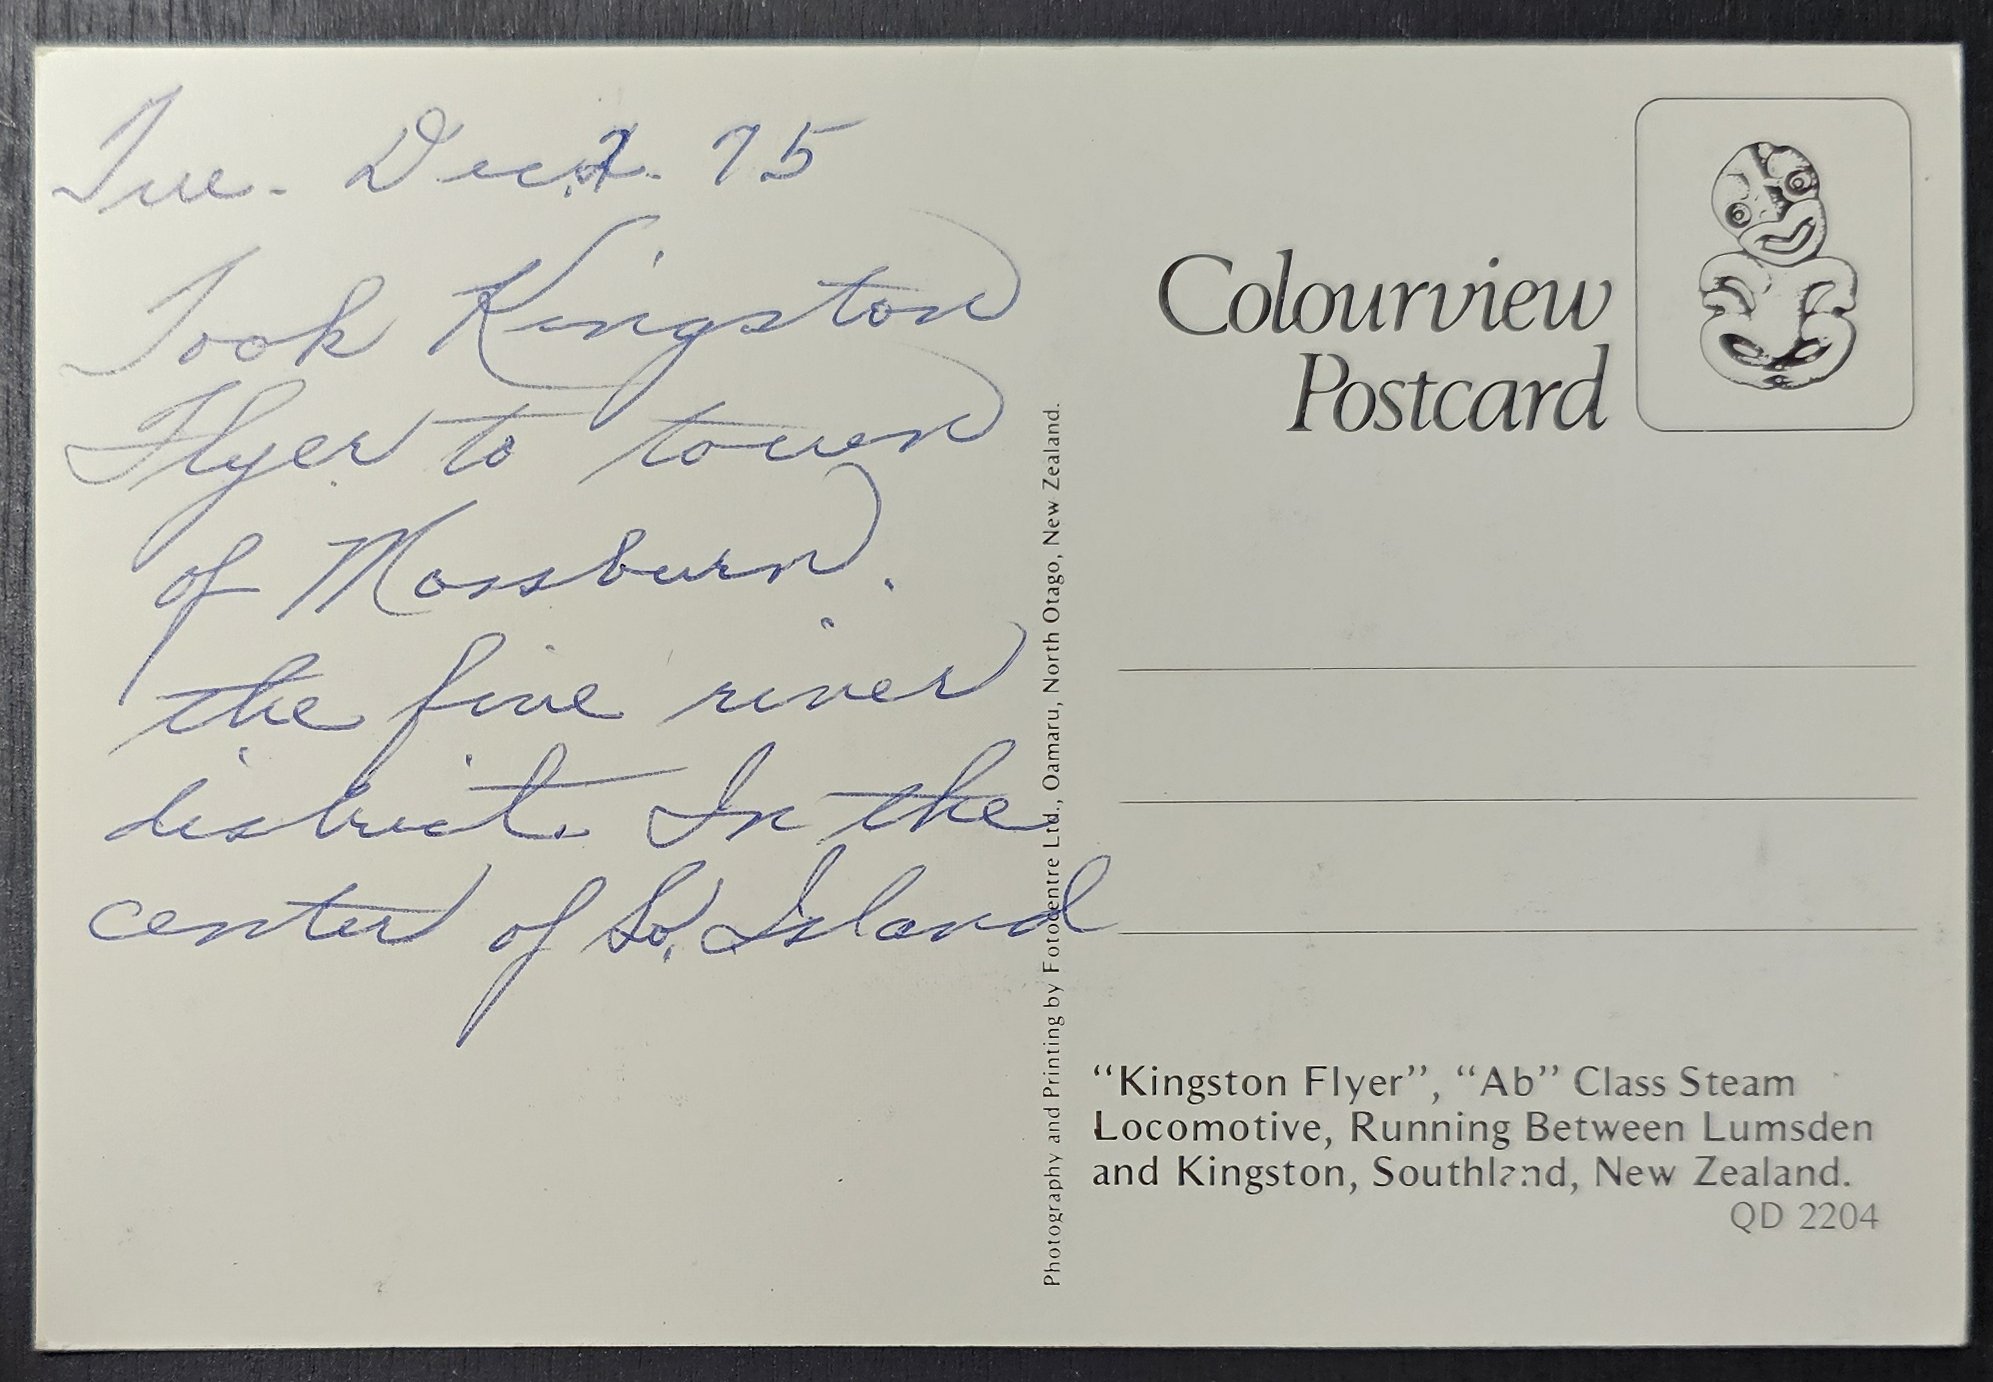 Tue. Dec. 2. 75
Took Kingston
Flyer to town
of Mossburn.
the five river
district. In the
center of So. Island
Photography and Printing by Fotocentre Ltd., Oamaru, North Otago, New Zealand.
Colourview
Postcard
“Kingston Flyer”, “Ab” Class Steam
Locomotive, Running Between Lumsden
and Kingston, Southland, New Zealand.
QD 2204